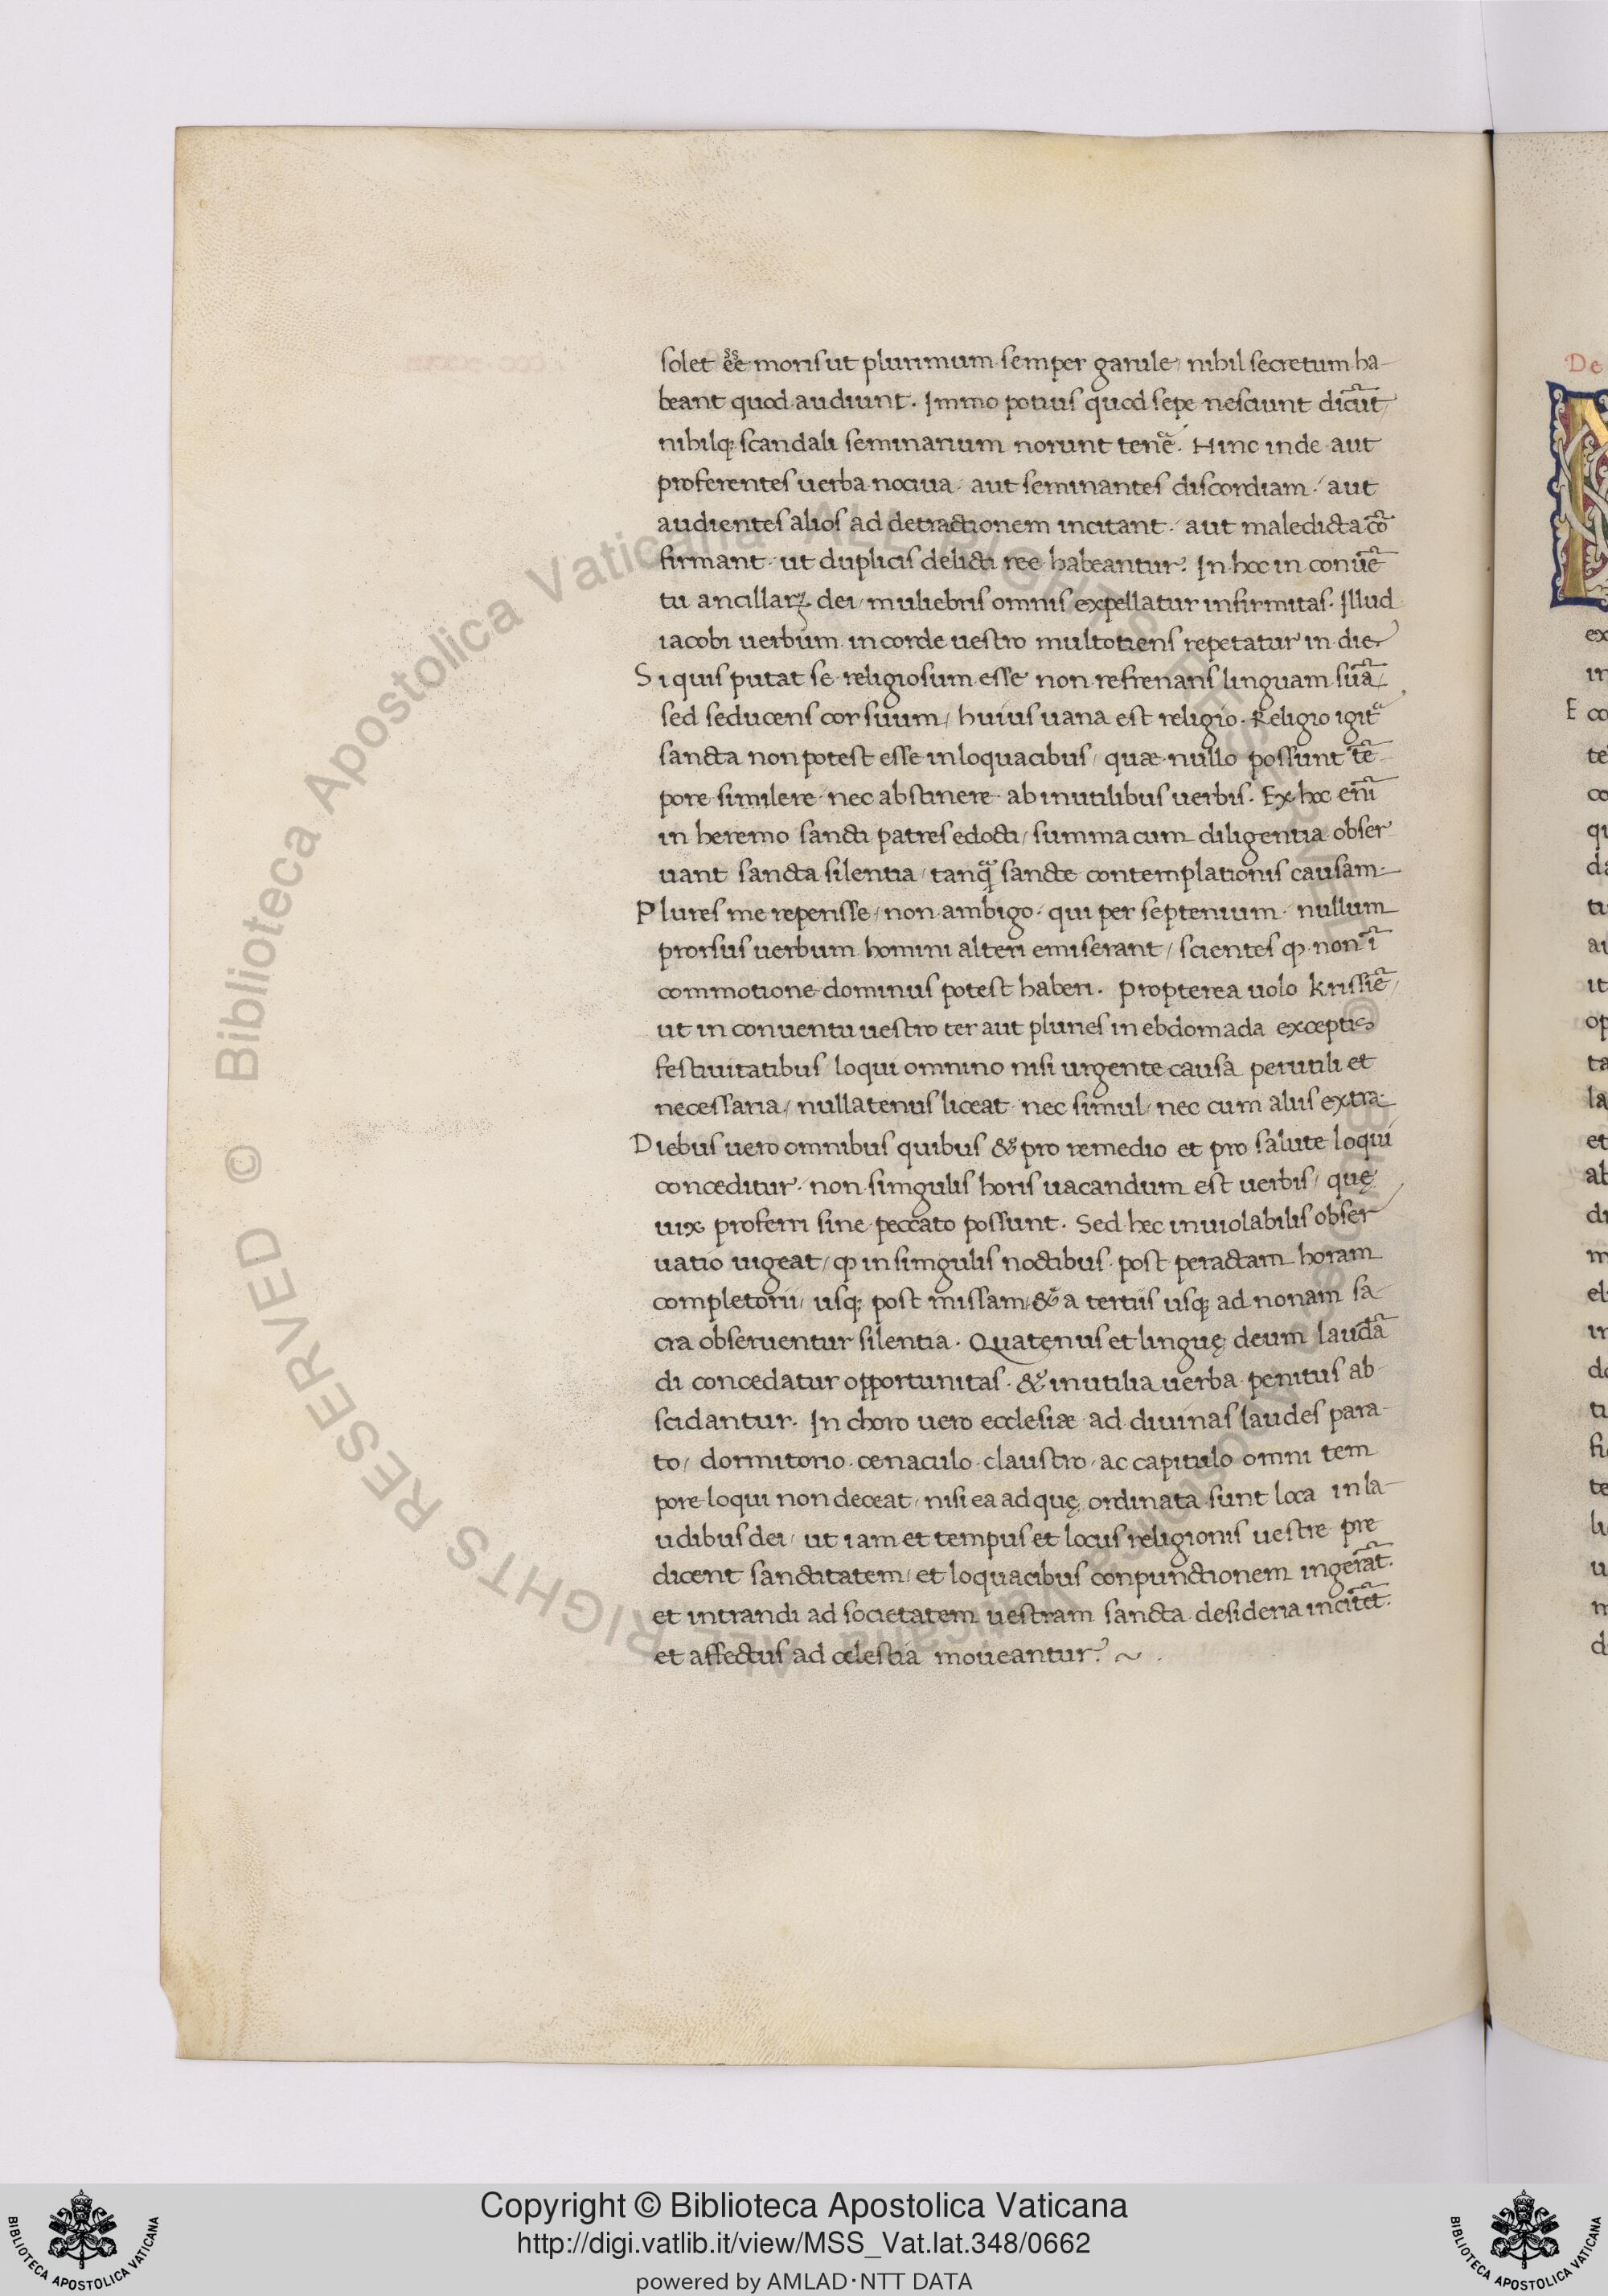 solet eẽ moris ut plurimum semper garule / nihil secretum ha-
beant quod audiunt. Immo potius quod sepe nesciunt dicũt /
nihilq; scandali seminarium norunt tenẽ. Hinc inde aut
proferentes uerba nociua. aut seminantes discordiam / aut
audientes alios ad detractionem incitant. aut maledicta cõ
firmant. ut duplicis delicti ree habeantur. In hoc in conuẽ
tu ancillarꝝ dei / muliebris omnis expellatur infirmitas. Illud
iacobi uerbum in corde uestro multotiens repetatur in die
Si quis putat se religiosum esse non refrenans linguam suã /
sed seducens cor suum / huius uana est religio. Religio igit᷑
sancta non potest esse in loquacibus / quæ nullo possunt tẽ-
pore similere. nec abstinere ab inutilibus uerbis. Ex hoc eni᷑
in heremo sancti patres edocti / summa cum diligentia obser
uant sancta silentia / tanq̃ sancte contemplationis causam.
Plures me reperisse / non ambigo. qui per septenium. nullum
prorsus uerbum homini alteri emiserant / scientes ꝙ non ĩ
commotione dominus potest haberi. Propterea uolo krissiẽ /
ut in conuentu uestro ter aut plures in ebdomada exceptis
festiuitatibus / loqui omnino nisi urgente causa perutili et
necessaria / nullatenus liceat. nec simul / nec cum aliis extra.
Diebus uero omnibus quibus & pro remedio et pro salute loqui
conceditur. non simgulis horis uacandum est uerbis / quę
uix proferri sine peccato possunt. Sed hec inuiolabilis obser
uatio uigeat / ꝙ in simgulis noctibus. post peractam horam
completorii / usq; post missam / & a tertiis usq; ad nonam sa
cra obseruentur silentia. Quatenus et linguę deum laudã
di concedatur opportunitas. & inutilia uerba penitus ab
scidantur. In choro uero ecclesiæ ad diuinas laudes para-
to / dormitorio. cenaculo. claustro. ac capitulo omni tem
pore loqui non deceat / nisi ea ad quę ordinata sunt loca in la-
udibus dei / ut iam et tempus et locus religionis uestre pre
dicent sanctitatem / et loquacibus conpunctionem ingerãt.
et intrandi ad societatem uestram sancta desideria incitẽt.
et affectus ad celestia moueantur. ~
De
ex
in
E co
te
co
qu
da
tu
au
it
op
ta
la
et
ab
di
m
el
in
do
tu
fi
te
li
u
m
d
© Biblioteca Apostolica Vaticana ALL RIGHTS RESERVED
Copyright © Biblioteca Apostolica Vaticana
http://digi.vatlib.it/view/MSS_Vat.lat.348/0662
powered by AMLAD･NTT DATA
BIBLIOTECA APOSTOLICA VATICANA
BIBLIOTECA APOSTOLICA VATICANA